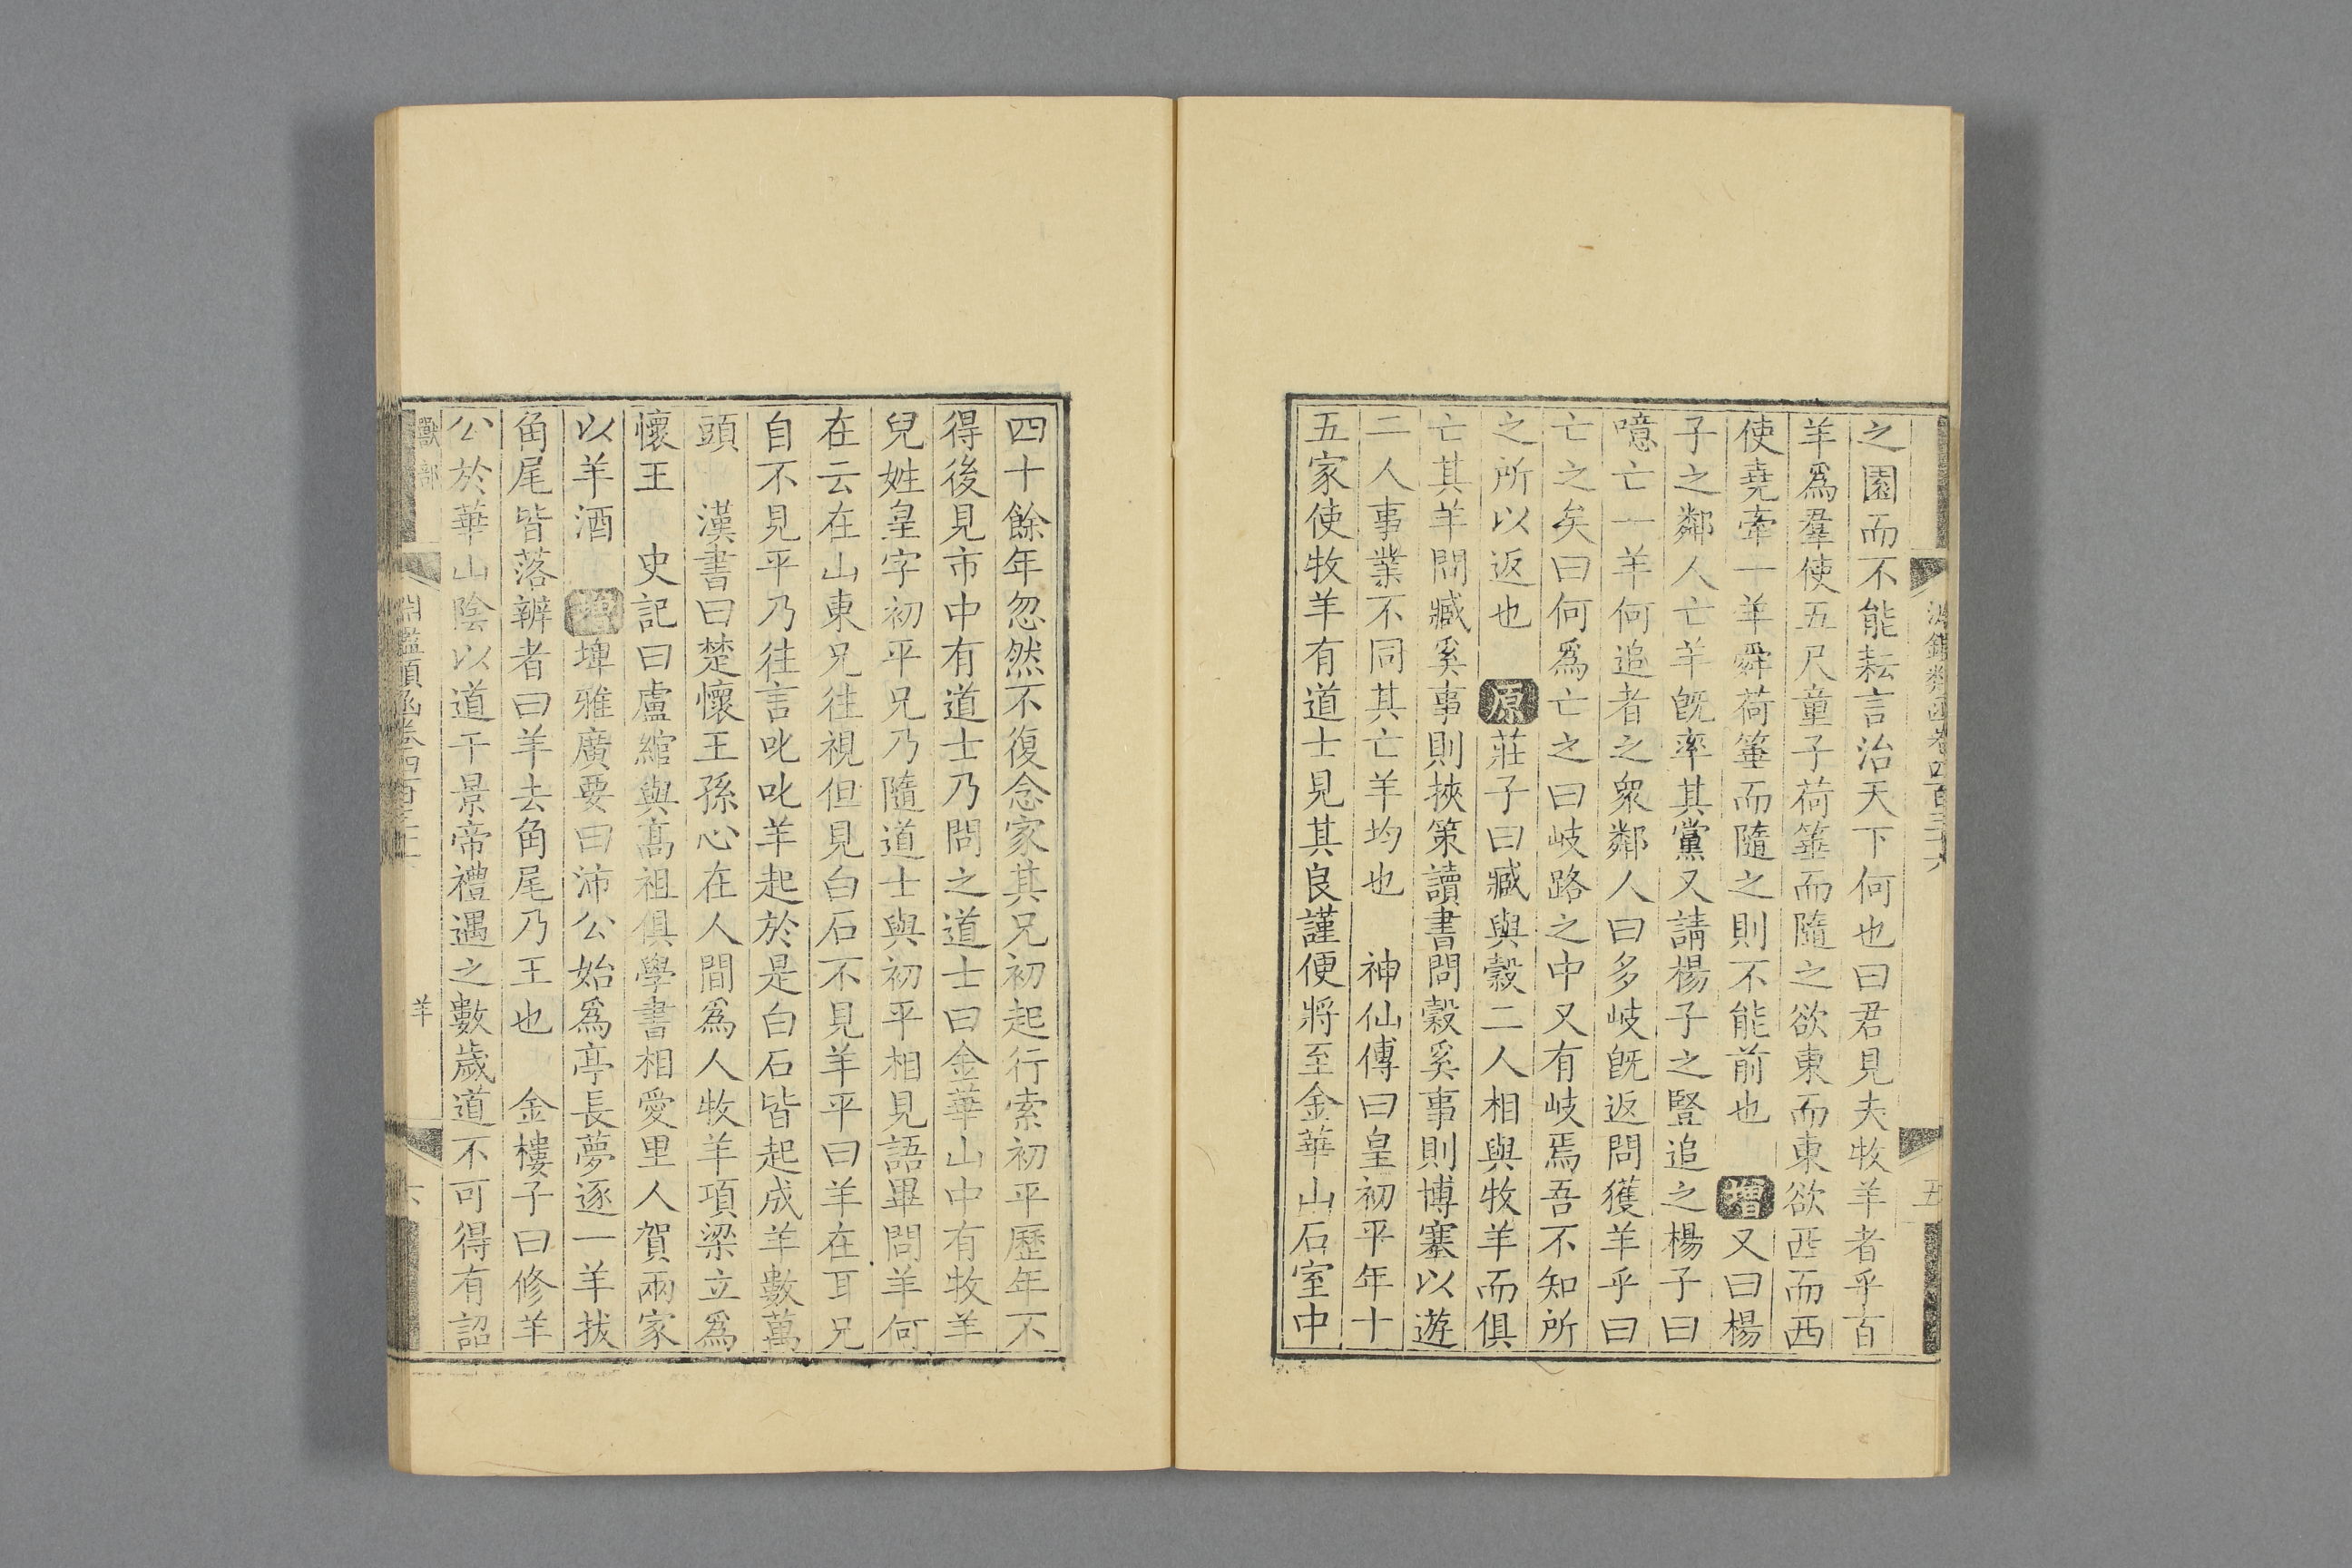 淵鑑類函卷四百三十六
五
之園而不能耘言治天下何也曰君見夫牧羊者乎百
羊爲羣使五尺童子荷箠而隨之欲東而東欲西而西
使堯牽一羊舜荷箠而隨之則不能前也 增又曰楊
子之鄰人亡羊旣率其黨又請楊子之豎追之楊子曰
噫亡一羊何追者之衆鄰人曰多岐旣返問獲羊乎曰
亡之矣曰何爲亡之曰岐路之中又有岐焉吾不知所
之所以返也 原莊子曰臧與榖二人相與牧羊而俱
亡其羊問臧奚事則挾策讀書問榖奚事則博塞以遊
二人事業不同其亡羊均也 神仙傳曰皇初平年十
五家使牧羊有道士見其良謹便將至金華山石室中
四十餘年忽然不復念家其兄初起行索初平歷年不
得後見市中有道士乃問之道士曰金華山中有牧羊
兒姓皇字初平兄乃隨道士與初平相見語畢問羊何
在云在山東兄往視但見白石不見羊平曰羊在耳兄
自不見平乃往言叱叱羊起於是白石皆起成羊數萬
頭 漢書曰楚懷王孫心在人間爲人牧羊項梁立爲
懷王 史記曰盧綰與髙祖俱學書相愛里人賀兩家
以羊酒 增埤雅廣要曰沛公始爲亭長夢逐一羊拔
角尾皆落辨者曰羊去角尾乃王也 金樓子曰修羊
公於華山陰以道干景帝禮遇之數歲道不可得有詔
獸部
淵鑑類函卷四百三十六
羊
六